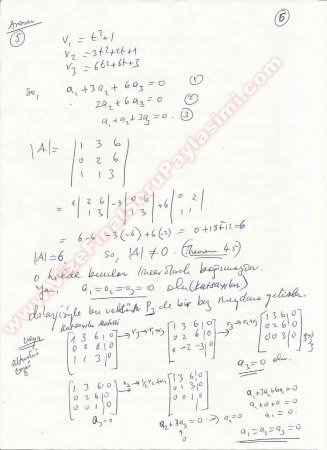 Answer
5
6
v₁ = t²+1
v₂ = 3t²+2t+1
v₃ = 6t²+6t+3
So, a₁+3a₂+6a₃=0 (1)
2a₂+6a₃=0 (2)
a₁+a₂+3a₃=0 (3)
|A| = | 1 3 6 |
| 0 2 6 |
| 1 1 3 |
= 1 | 2 6 | -3 | 0 6 | +6 | 0 2 |
| 1 3 | | 1 3 | | 1 1 |
= 6-6 -3(-6)+6(-2) = 0+18-12=6
|A|=6, So, |A| ≠ 0. (Theorem 4.5)
o halde bunlar lineer olarak bağımsızdır.
Yani a₁=a₂=a₃=0 olur (katsayılar)
dolayısıyla bu vektörler P₂ de bir baz meydana getirirler.
veya
Katsayılar matrisi
[ 1 3 6 | 0 ]
[ 0 2 6 | 0 ]
[ 1 1 3 | 0 ]
[ 1 3 6 | 0 ]
[ 0 2 6 | 0 ]
[ 0 -2 -3 | 0 ]
[ 1 3 6 | 0 ]
[ 0 2 6 | 0 ]
[ 0 0 3 | 0 ]
a₃=0 olur.
[ 1 3 6 | 0 ]
[ 0 2 6 | 0 ]
[ 0 0 1 | 0 ]
a₃=0
[ 1 3 6 | 0 ]
[ 0 1 3 | 0 ]
[ 0 0 1 | 0 ]
a₂+3a₃=0 → a₂=0
a₁+3a₂+6a₃=0
a₁+0+0=0
a₁=0.
a₁=a₂=a₃=0